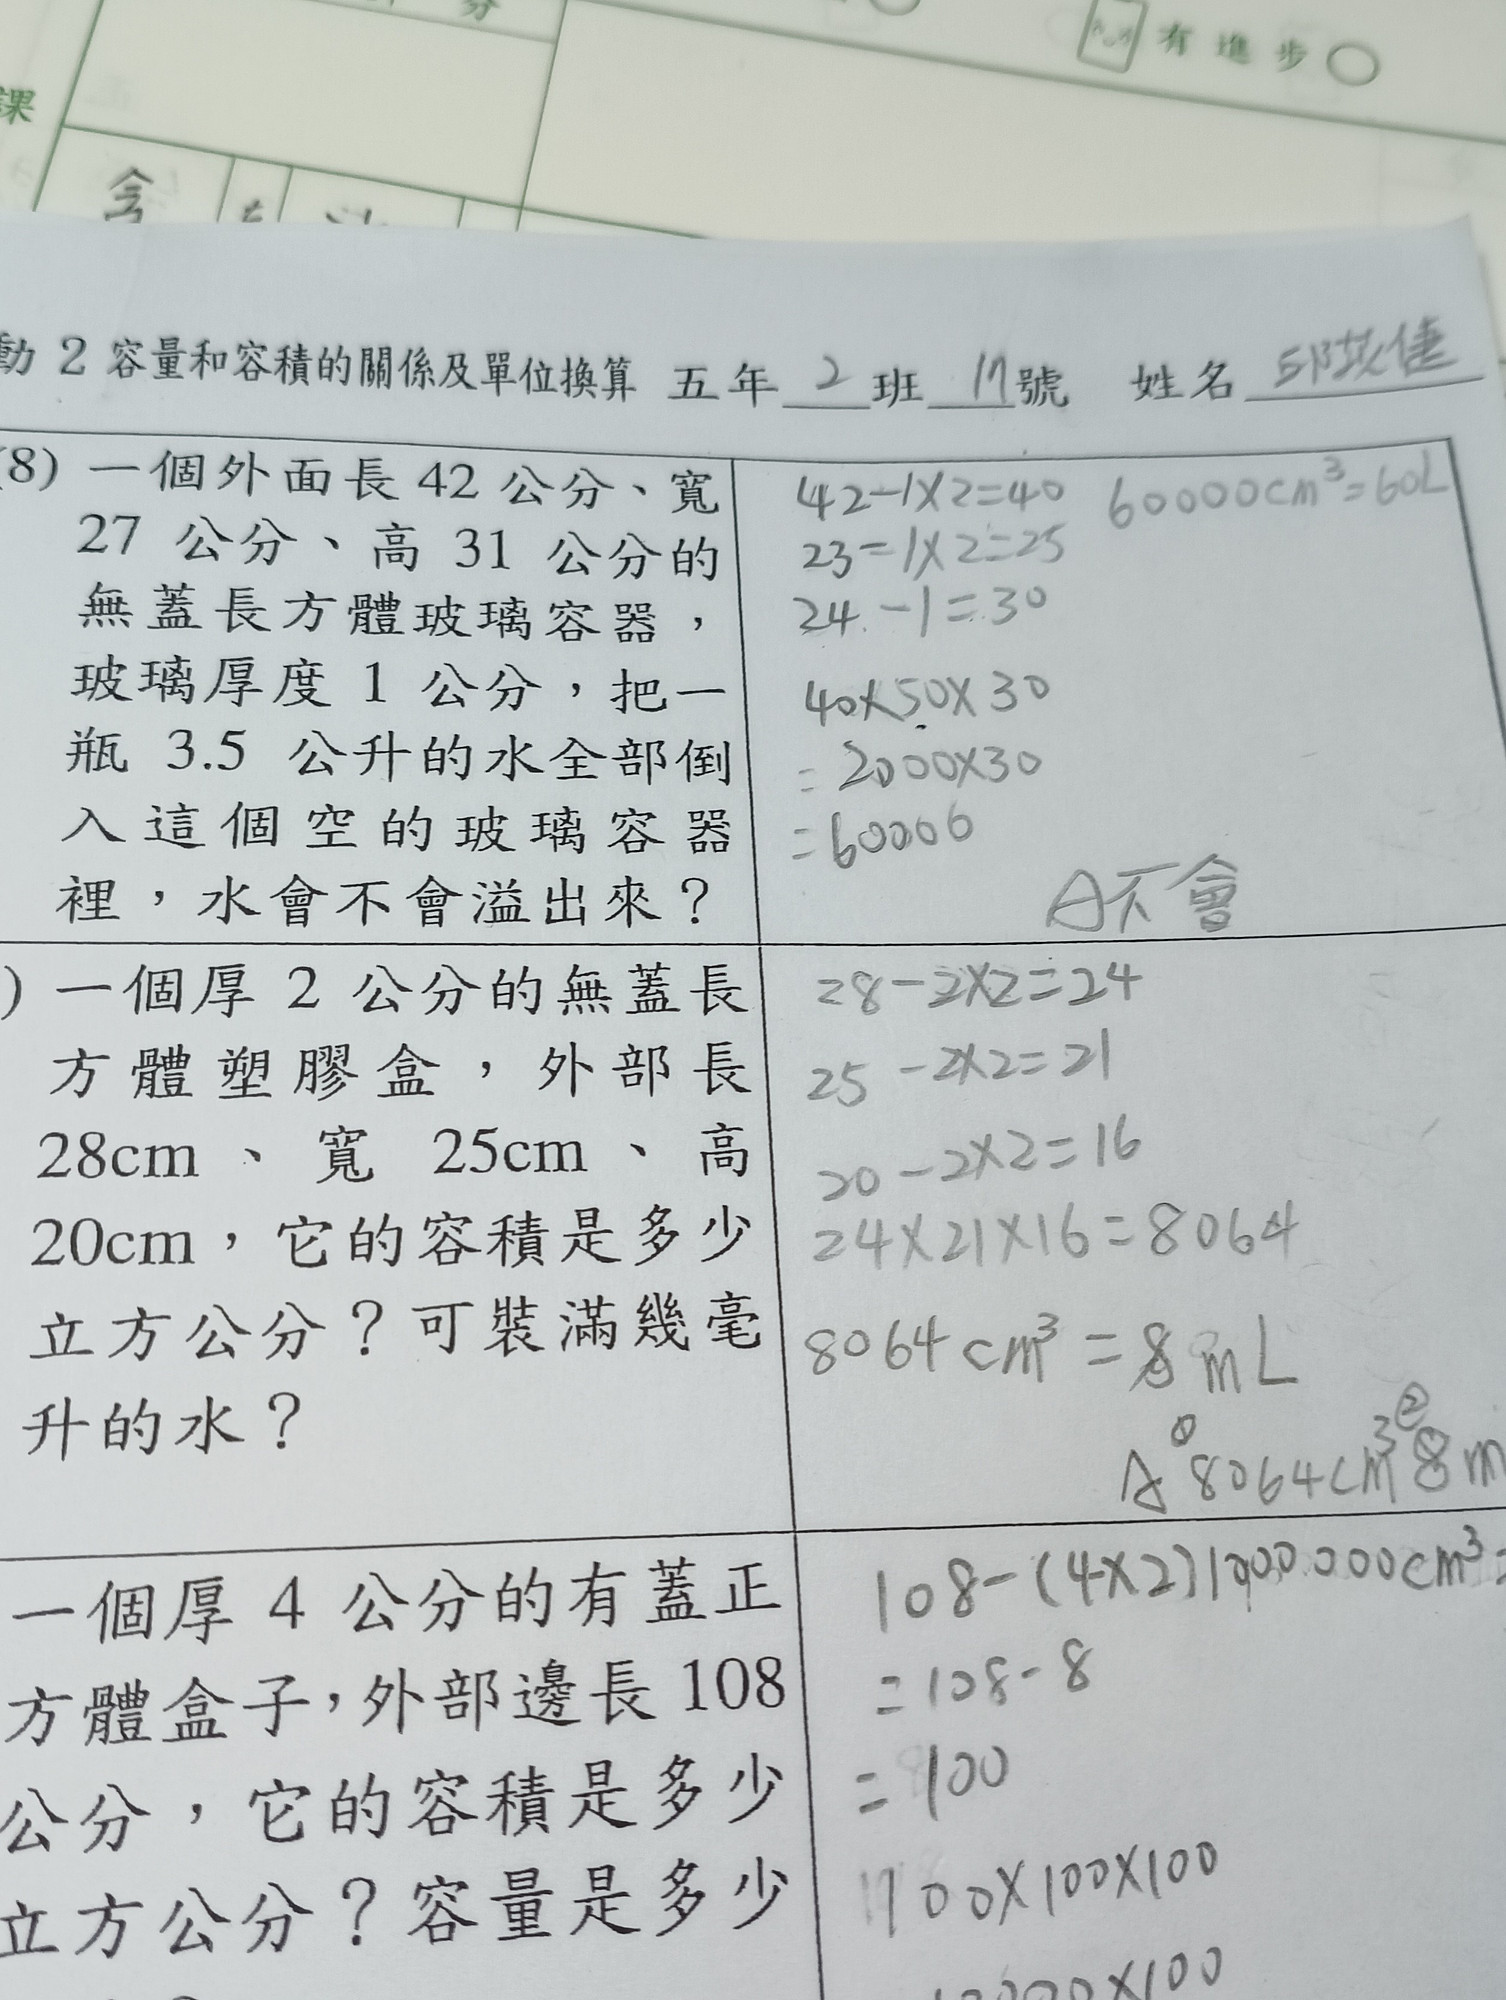 分
有進步
課
動 2 容量和容積的關係及單位換算 五年 2 班 17 號 姓名
(8) 一個外面長 42 公分、寬
27 公分、高 31 公分的
無蓋長方體玻璃容器，
玻璃厚度 1 公分，把一
瓶 3.5 公升的水全部倒
入這個空的玻璃容器
裡，水會不會溢出來？
42-1×2=40 60000cm³=60L
23-1×2=25
24-1=30
40×50×30
=2000×30
=60000
A不會
) 一個厚 2 公分的無蓋長
方體塑膠盒，外部長
28cm、寬 25cm、高
20cm，它的容積是多少
立方公分？可裝滿幾毫
升的水？
28-2×2=24
25-2×2=21
20-2×2=16
24×21×16=8064
8064cm³=8mL
A①8064cm³②8m
一個厚 4 公分的有蓋正
方體盒子，外部邊長 108
公分，它的容積是多少
立方公分？容量是多少
108-(4×2)1000000cm³=
=108-8
=100
100×100×100
10000×100